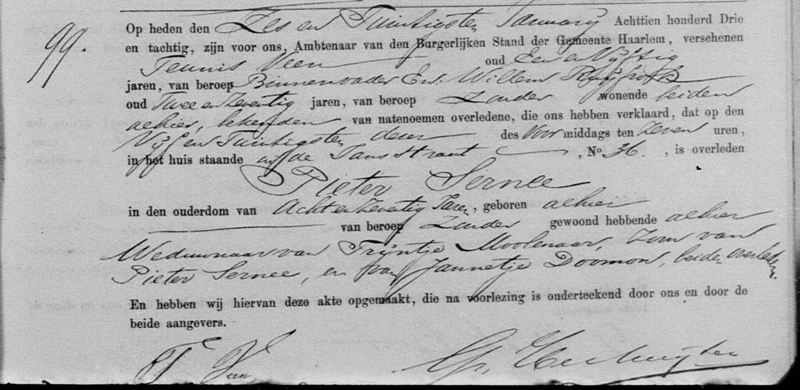 99.
Op heden den Zes en Twintigsten January Achttien honderd Drie
en tachtig, zijn voor ons, Ambtenaar van den Burgerlijken Stand der Gemeente Haarlem, verschenen
Teunis Veen oud Een en Vijftig
jaren, van beroep Binnenvader En Willem
oud Twee en Zeventig jaren, van beroep Zonder wonende beiden
alhier, bekenden van natenoemen overledene, die ons hebben verklaard, dat op den
Vijf en Twintigsten dezer des Voor middags ten Zeven uren,
in het huis staande in de Jansstraat, No 36, is overleden
Pieter Sernee
in den ouderdom van Acht en Zeventig Jaren, geboren alhier
van beroep Zonder gewoond hebbende alhier
Weduwnaar van Trijntje Moolenaar, Zoon van
Pieter Sernee, en van Jannetje Doomon, beiden overleden.
En hebben wij hiervan deze akte opgemaakt, die na voorlezing is onderteekend door ons en door de
beide aangevers.
T. Veen